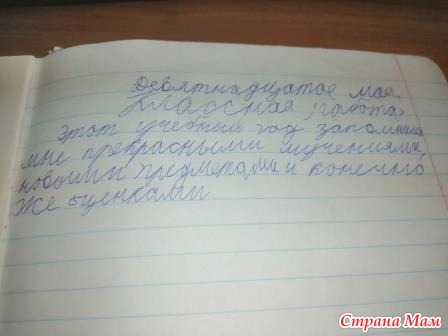 Девятнадцатое мая.
Классная работа.
Этот учебный год запомнился
мне прекрасными мучениями,
новыми предметами и конечно
же оценками
Страна Мам